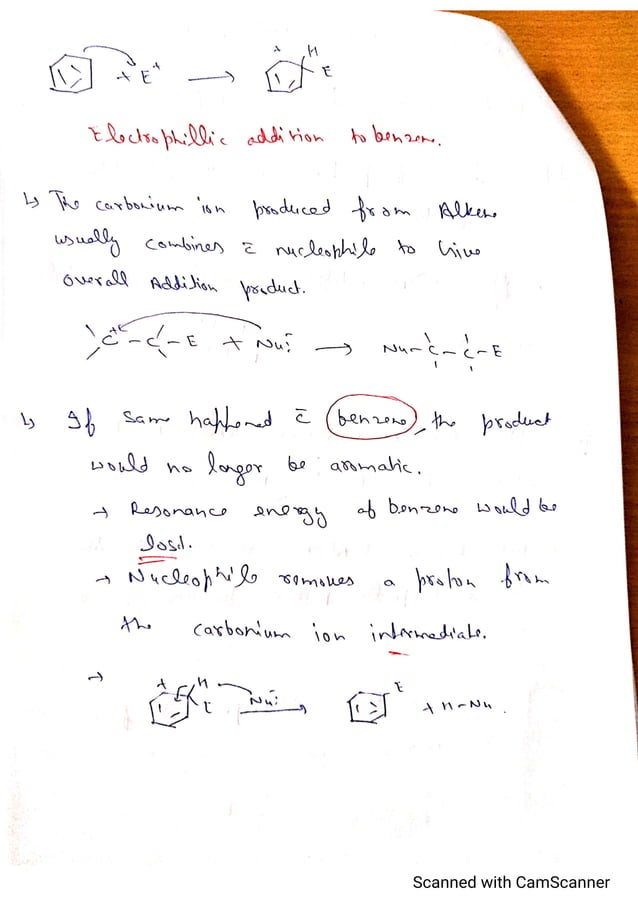 + E⁺ → + H E
Electrophillic addition to benzene.
↳ The carbonium ion produced from Alkene
usually combines c̄ nucleophile to Give
overall Addition product.
C⁺ - C - E + Nu:⁻ → Nu - C - C - E
↳ If same happened c̄ benzene, the product
would no longer be aromatic.
→ Resonance energy of benzene would be
lost.
→ Nucleophile removes a proton from
the carbonium ion intermediate.
→ + H E Nu:⁻ → E + H-Nu.
Scanned with CamScanner